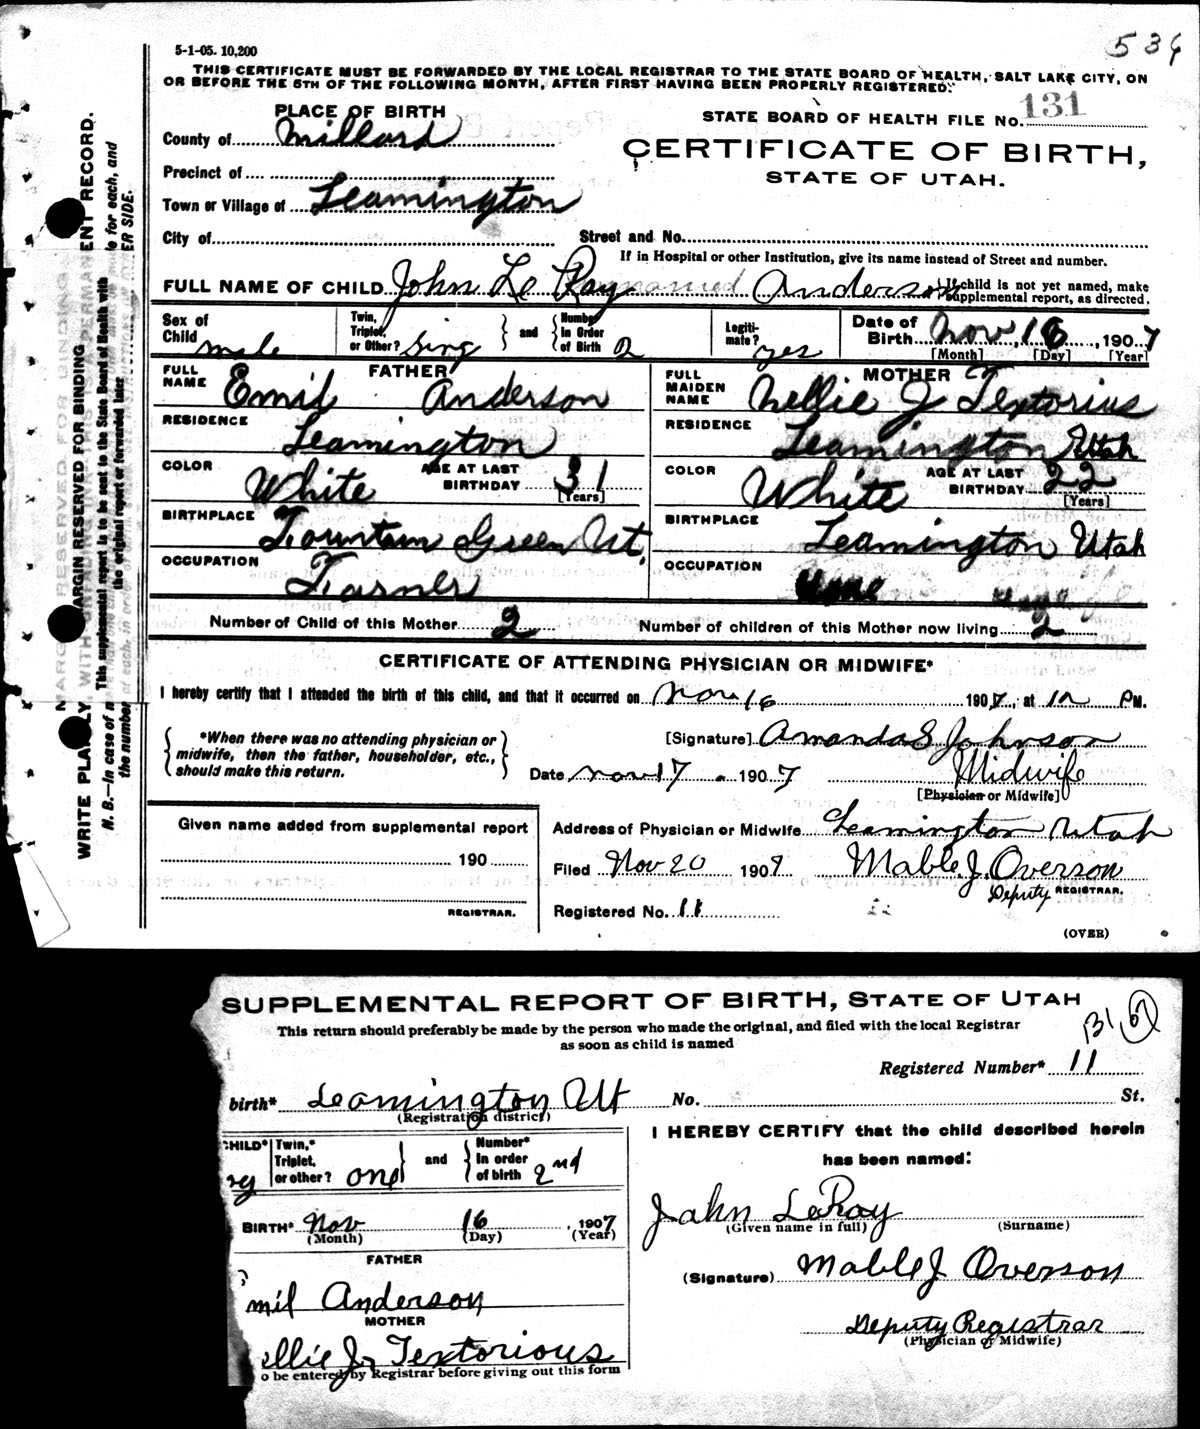 534
5-1-05. 10,200
THIS CERTIFICATE MUST BE FORWARDED BY THE LOCAL REGISTRAR TO THE STATE BOARD OF HEALTH, SALT LAKE CITY, ON
OR BEFORE THE 5TH OF THE FOLLOWING MONTH, AFTER FIRST HAVING BEEN PROPERLY REGISTERED.
PLACE OF BIRTH
STATE BOARD OF HEALTH FILE NO. 131
County of Millard
CERTIFICATE OF BIRTH,
STATE OF UTAH.
Precinct of
Town or Village of Leamington
City of Street and No.
If in Hospital or other Institution, give its name instead of Street and number.
FULL NAME OF CHILD John Le Ray Anderson
If child is not yet named, make
supplemental report, as directed.
Sex of Child male Twin, Triplet, or Other? Sing and Number In Order of Birth 2 Legiti-mate? yes Date of Birth Nov 16, 1907
[Month] [Day] [Year]
FATHER
FULL NAME Emil Anderson
RESIDENCE Leamington
COLOR White AGE AT LAST BIRTHDAY 31
[Years]
BIRTHPLACE Fountain Green Ut.
OCCUPATION Farmer
MOTHER
FULL MAIDEN NAME Nellie J Textorius
RESIDENCE Leamington Utah
COLOR White AGE AT LAST BIRTHDAY 22
[Years]
BIRTHPLACE Leamington Utah
OCCUPATION
Number of Child of this Mother 2 Number of children of this Mother now living 2
CERTIFICATE OF ATTENDING PHYSICIAN OR MIDWIFE*
I hereby certify that I attended the birth of this child, and that it occurred on Nov 16 1907, at 12 PM.
*When there was no attending physician or
midwife, then the father, householder, etc.,
should make this return.
[Signature] Amanda E Johnson
Date Nov 17 1907 Midwife
[Physician or Midwife]
Given name added from supplemental report
190
REGISTRAR.
Address of Physician or Midwife Leamington Utah
Filed Nov 20 1907 Mable J. Overson
Deputy REGISTRAR.
Registered No. 11
(OVER)
MARGIN RESERVED FOR BINDING
WRITE PLAINLY, WITH
PERMANENT RECORD.
N. B.—In case of
for each, and
the number
ER SIDE.
This supplemental report to be sent to the State Board of Health with
the original report or forwarded later
SUPPLEMENTAL REPORT OF BIRTH, STATE OF UTAH
This return should preferably be made by the person who made the original, and filed with the local Registrar
as soon as child is named
131
Registered Number* 11
birth* Leamington Ut No. St.
(Registration district)
CHILD* Twin,* Triplet, or other? one and Number* In order of birth 2nd
BIRTH* Nov 16, 1907
(Month) (Day) (Year)
FATHER
mil Anderson
MOTHER
ellie J. Textorious
o be entered by Registrar before giving out this form
I HEREBY CERTIFY that the child described herein
has been named:
John LeRay
(Given name in full) (Surname)
(Signature) Mable J Overson
Deputy Registrar
(Physician or Midwife)